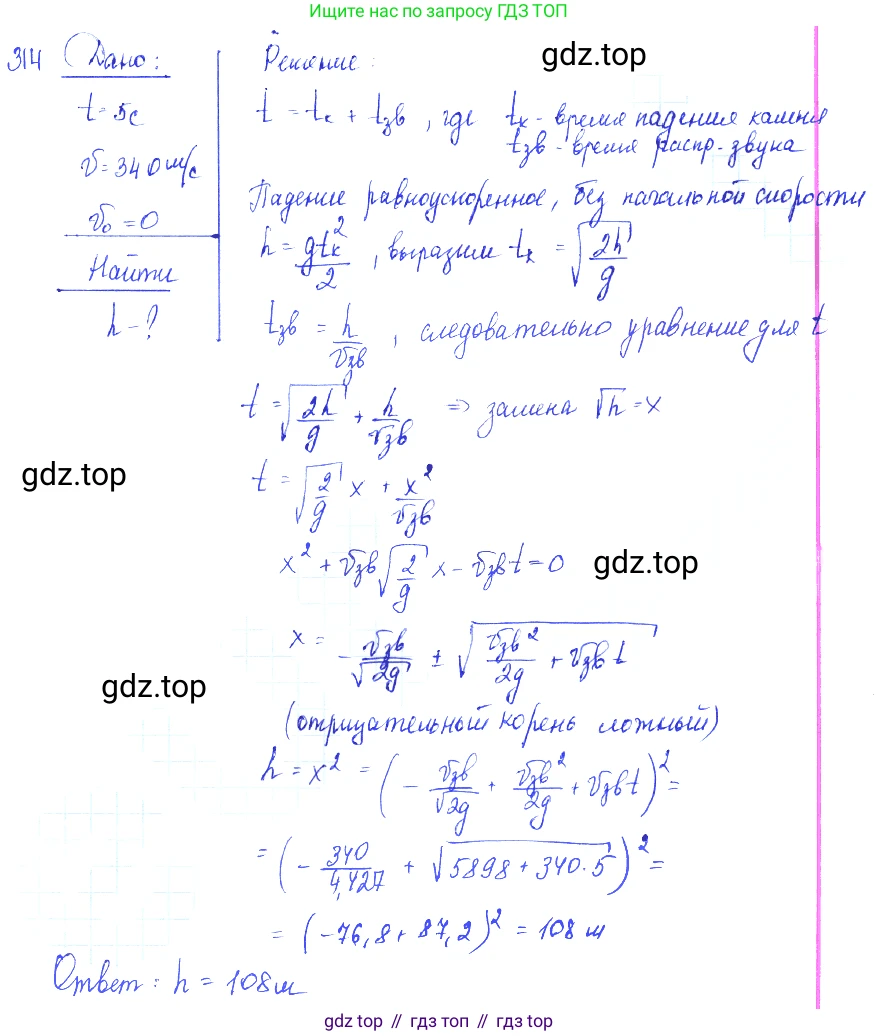 Ищите нас по запросу ГДЗ ТОП
314 Дано: Решение:
gdz.top
t = 5c
t = tк + tзв, где tк - время падения камня
tзв - время распр. звука
v = 340 м/с
v₀ = 0
Падение равноускоренное, без начальной скорости
h = gtк²/2, выразим tк = √(2h/g)
Найти
h - ?
tзв = h/vзв, следовательно уравнение для t
t = √(2h/g) + h/vзв ⇒ замена √h = x
gdz.top
t = √(2/g) x + x²/vзв
x² + vзв √(2/g) x - vзв t = 0
gdz.top
x = - vзв/√(2g) ± √(vзв²/2g + vзв t)
gdz.top
(отрицательный корень ложный)
h = x² = (- vзв/√(2g) + vзв²/2g + vзв t)² =
= (- 340/4,427 + √(5898 + 340·5))² =
= (-76,8 + 87,2)² = 108 м
Ответ: h = 108 м
gdz.top // гдз топ // гдз top